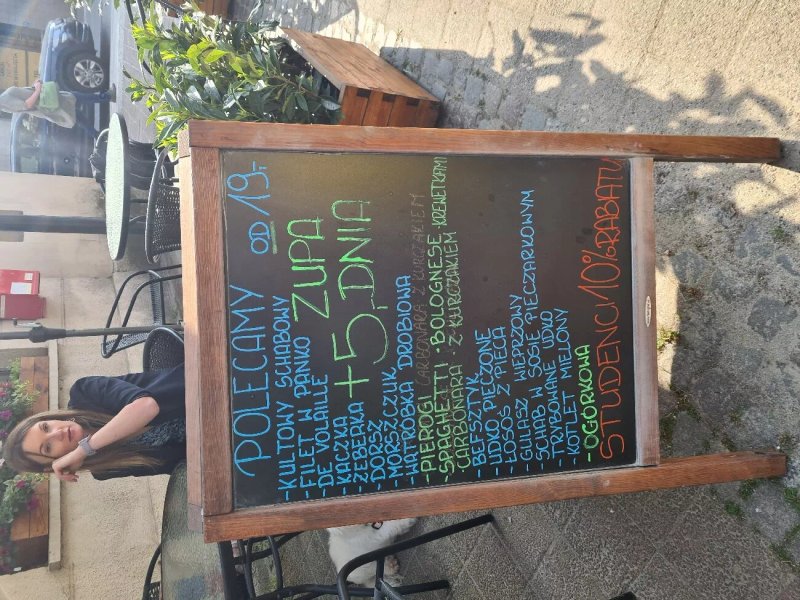 POLECAMY OD 19,-
-KULTOWY SCHABOWY
-FILET W PANKO
-DE VOLAILLE
-KACZKA
-ŻEBERKA
ZUPA
+5,- DNIA
-DORSZ
-MORSZCZUK
-WĄTRÓBKA DROBIOWA
-PIEROGI CARBONARA Z KURCZAKIEM
-SPAGHETTI • BOLOGNESE • KREWETKAMI
CARBONARA • Z KURCZAKIEM
-BEFSZTYK
-UDKO PIECZONE
-ŁOSOŚ Z PIECA
-GULASZ WIEPRZOWY
-SCHAB W SOSIE PIECZARKOWYM
-TRYBOWANE UDKO
-KOTLET MIELONY
-OGÓRKOWA
STUDENCI 10% RABATU